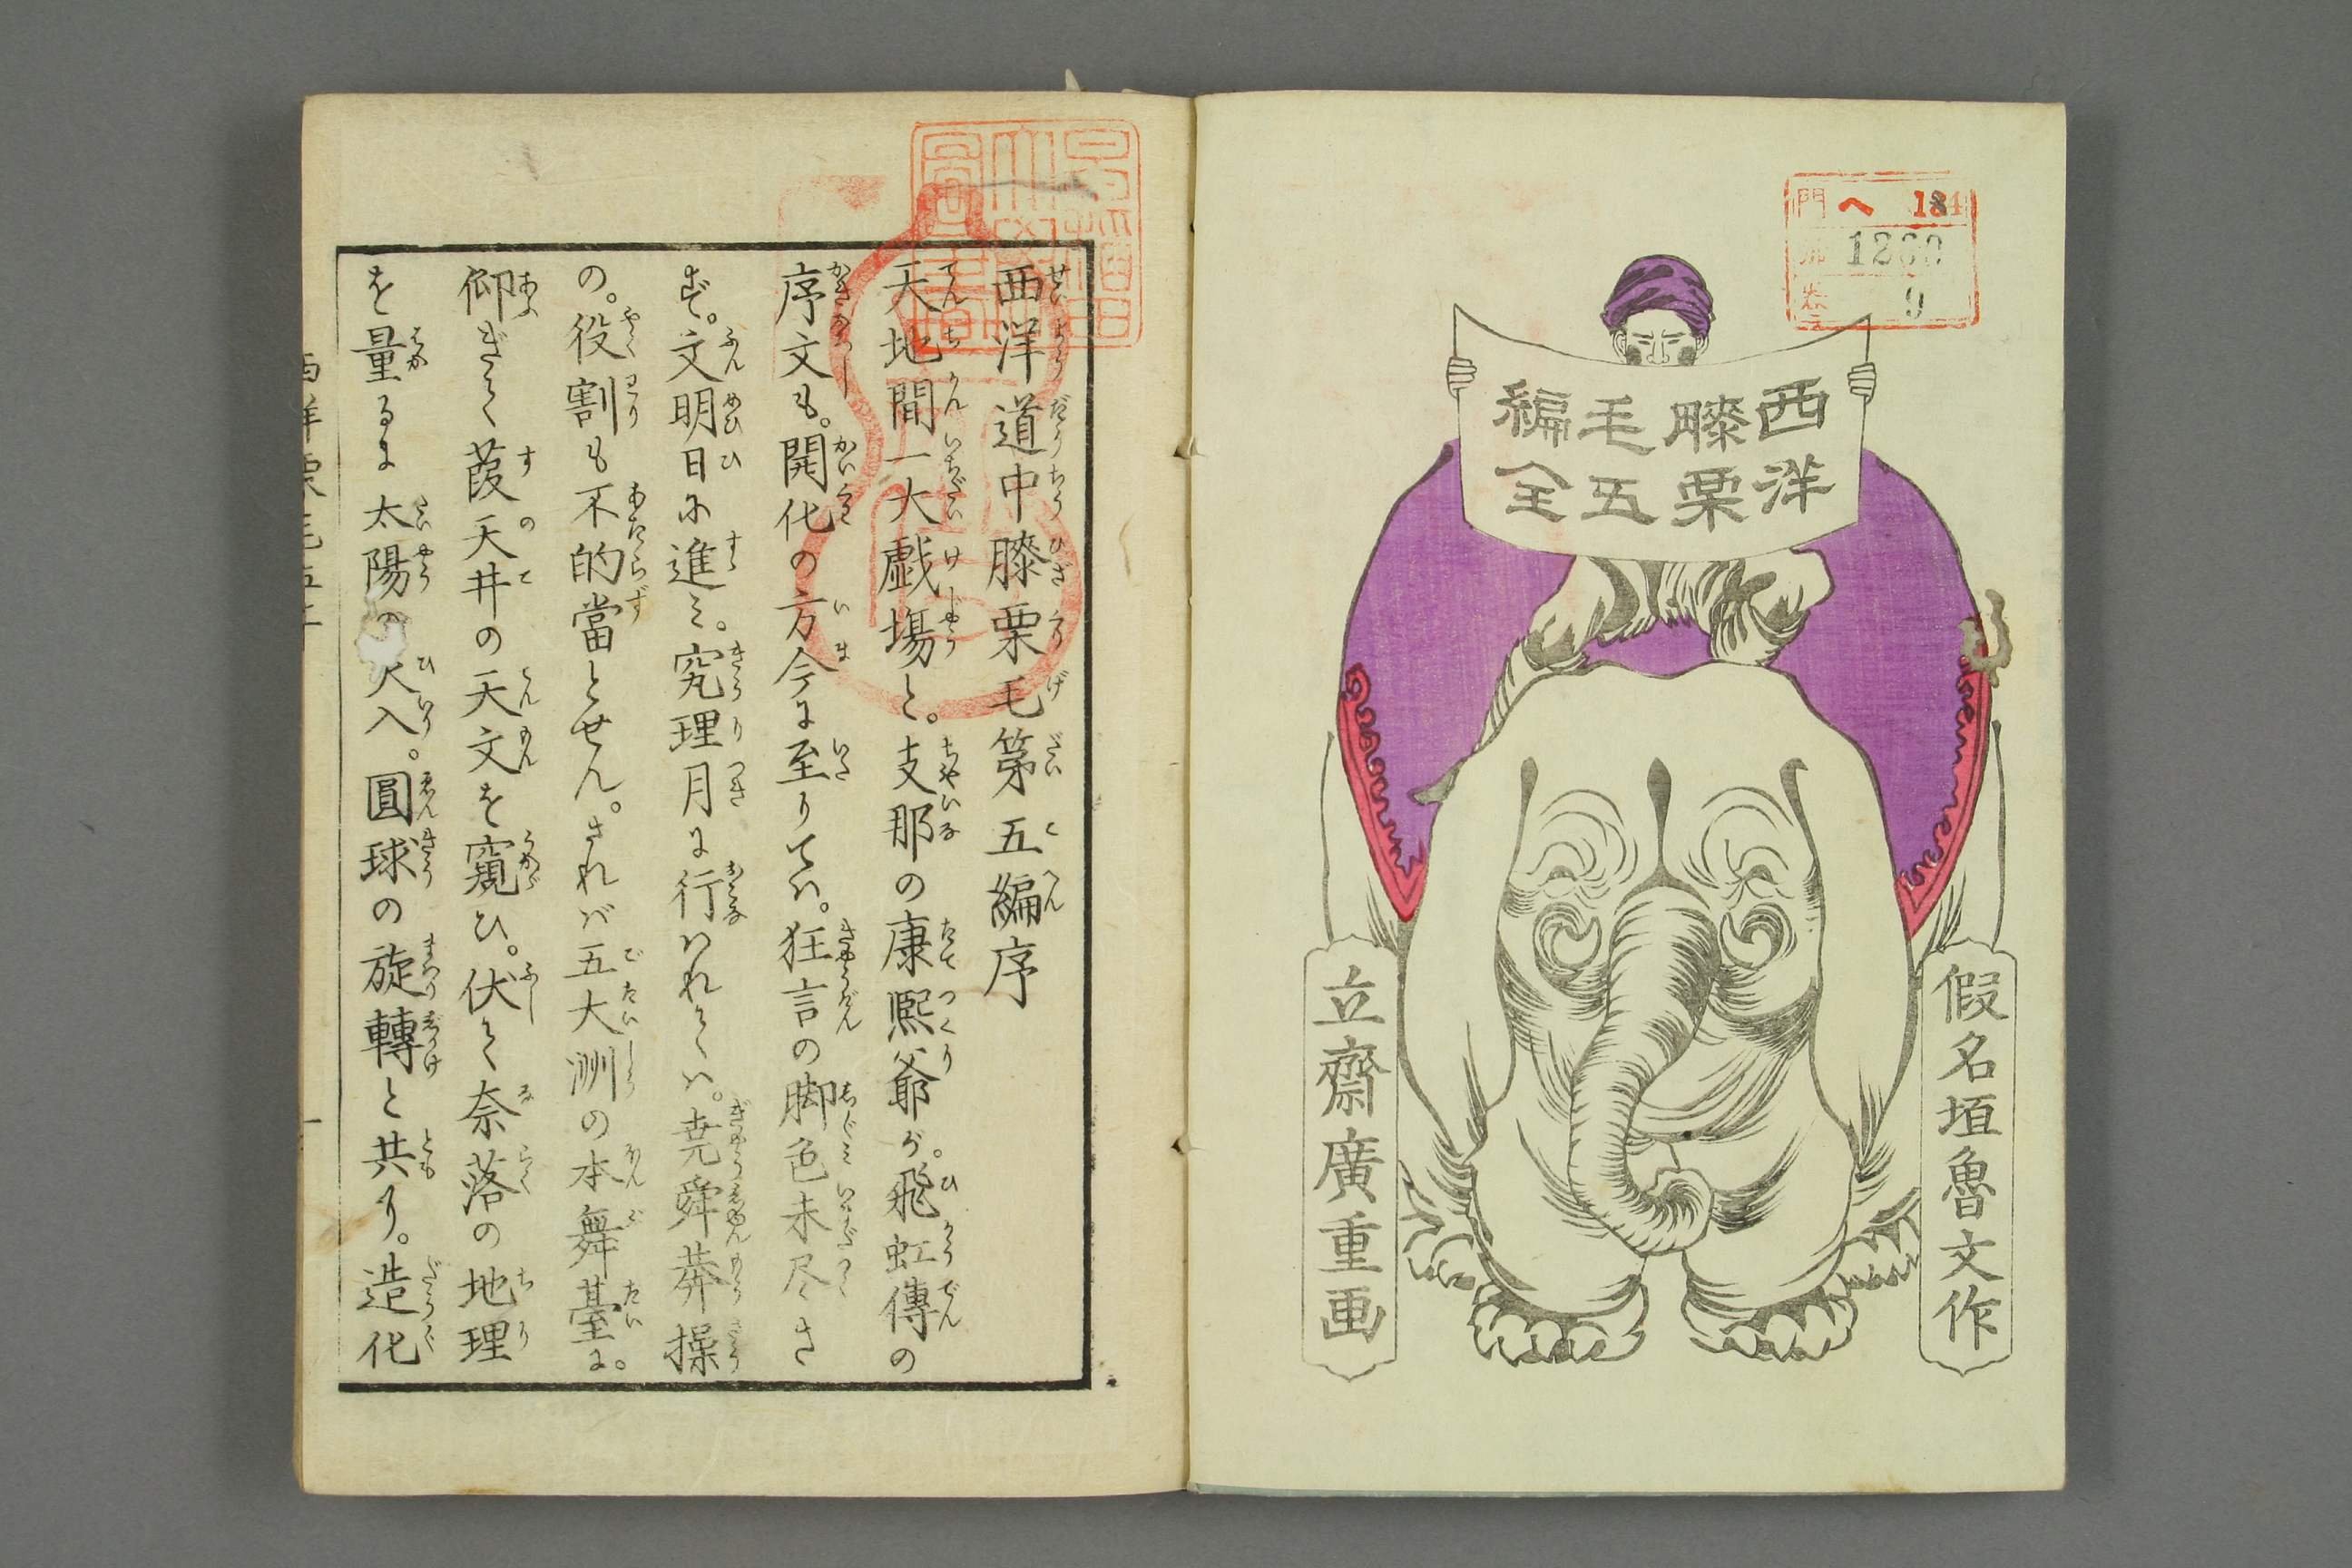 門 ヘ 184
1260
巻 9
西洋
膝栗
毛五
編全
假名垣魯文作
立齋廣重画
西洋道中膝栗毛第五編序
天地間一大戯場と。支那の康熈爺が。飛虹傳の
序文も。開化の方今に至りては。狂言の脚色未尽さ
ず。文明日に進み。究理月に行はれては。堯舜莽操
の。役割も不的當とせん。されば五大洲の本舞臺に。
仰ぎて葭天井の天文を窺ひ。伏て奈落の地理
を量るに太陽の火入。圓球の旋轉と共り。造化
西洋栗毛五